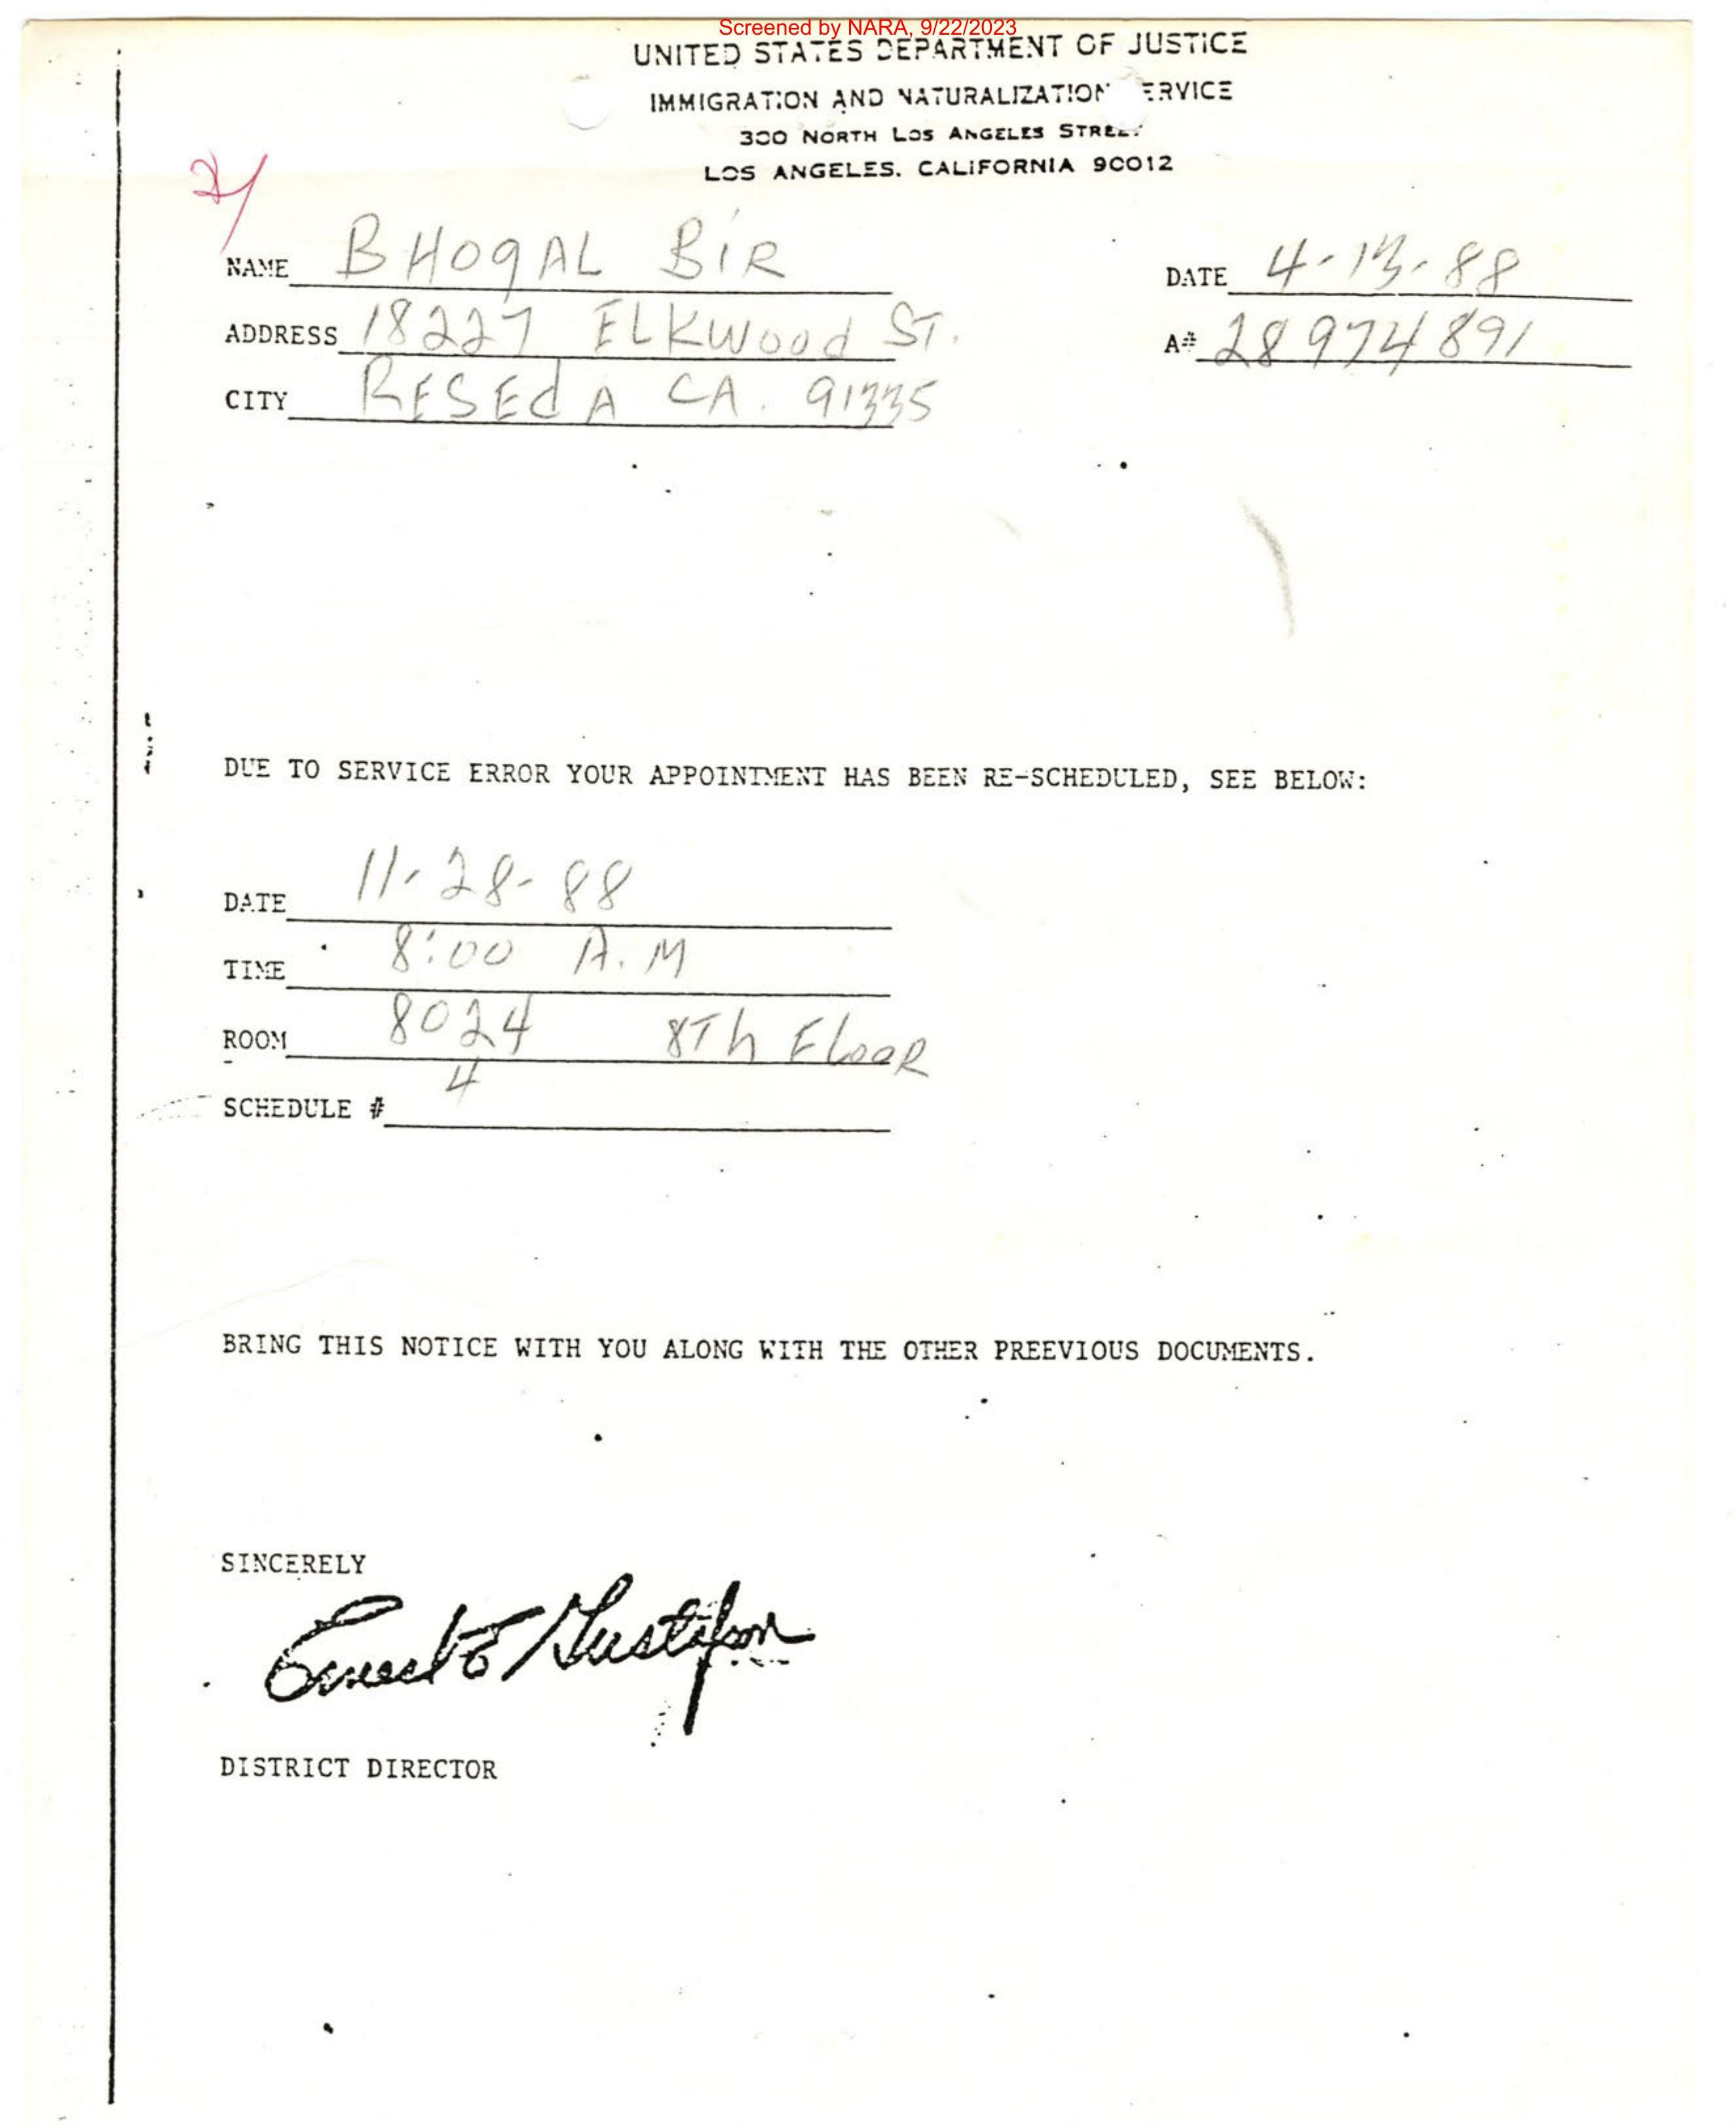 Screened by NARA, 9/22/2023
UNITED STATES DEPARTMENT OF JUSTICE
IMMIGRATION AND NATURALIZATION ERVICE
300 NORTH LOS ANGELES STREET
LOS ANGELES, CALIFORNIA 90012
NAME BHOgAL BiR DATE 4-13-88
ADDRESS 18227 ELKWood ST. A# 28974891
CITY RESEdA CA. 91335
DUE TO SERVICE ERROR YOUR APPOINTMENT HAS BEEN RE-SCHEDULED, SEE BELOW:
DATE 11-28-88
TIME 8:00 A.M
ROOM 8024 8Th FLooR
SCHEDULE # 4
BRING THIS NOTICE WITH YOU ALONG WITH THE OTHER PREEVIOUS DOCUMENTS.
SINCERELY
Ernest E Gustafson
DISTRICT DIRECTOR